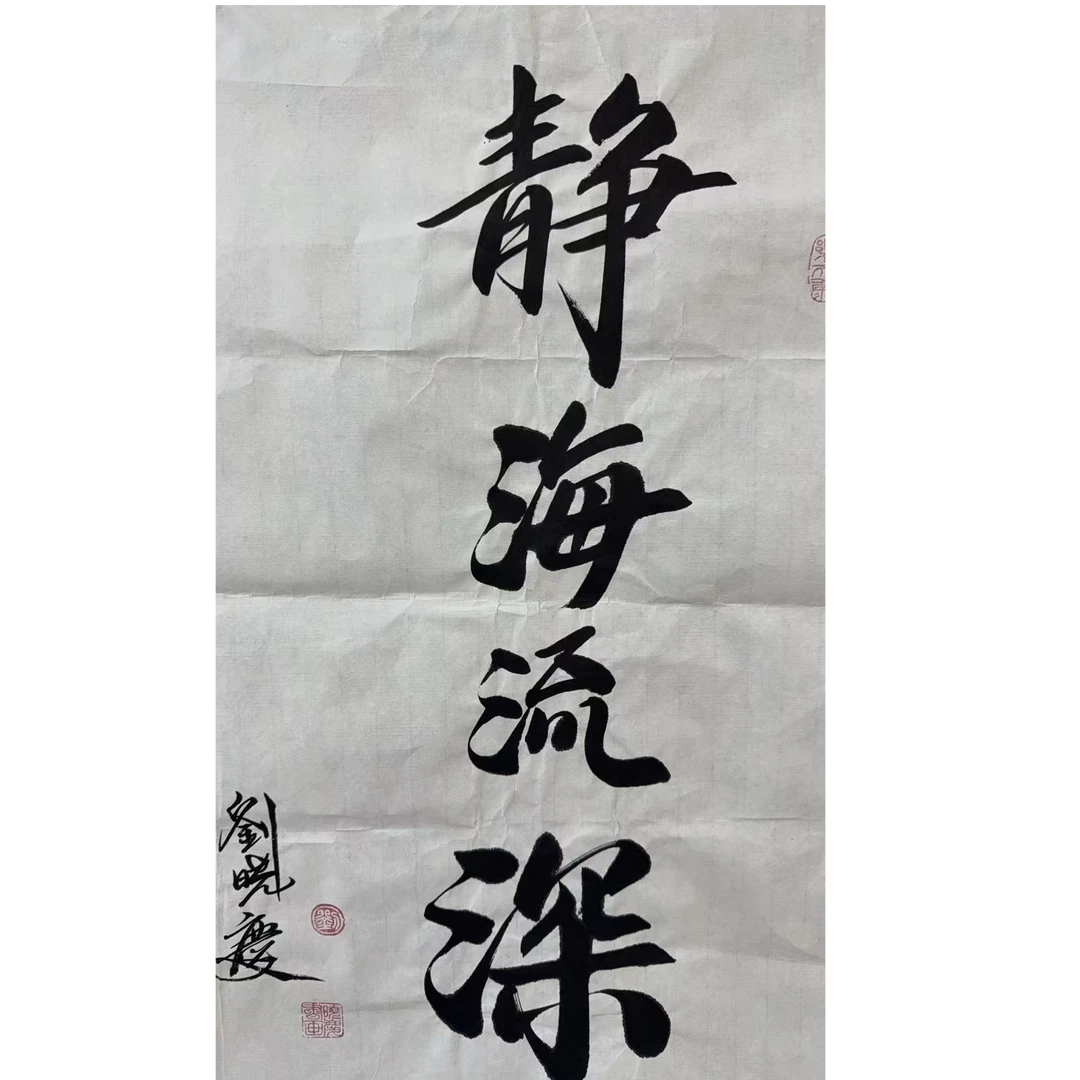 静海流深
劉曉慶
劉